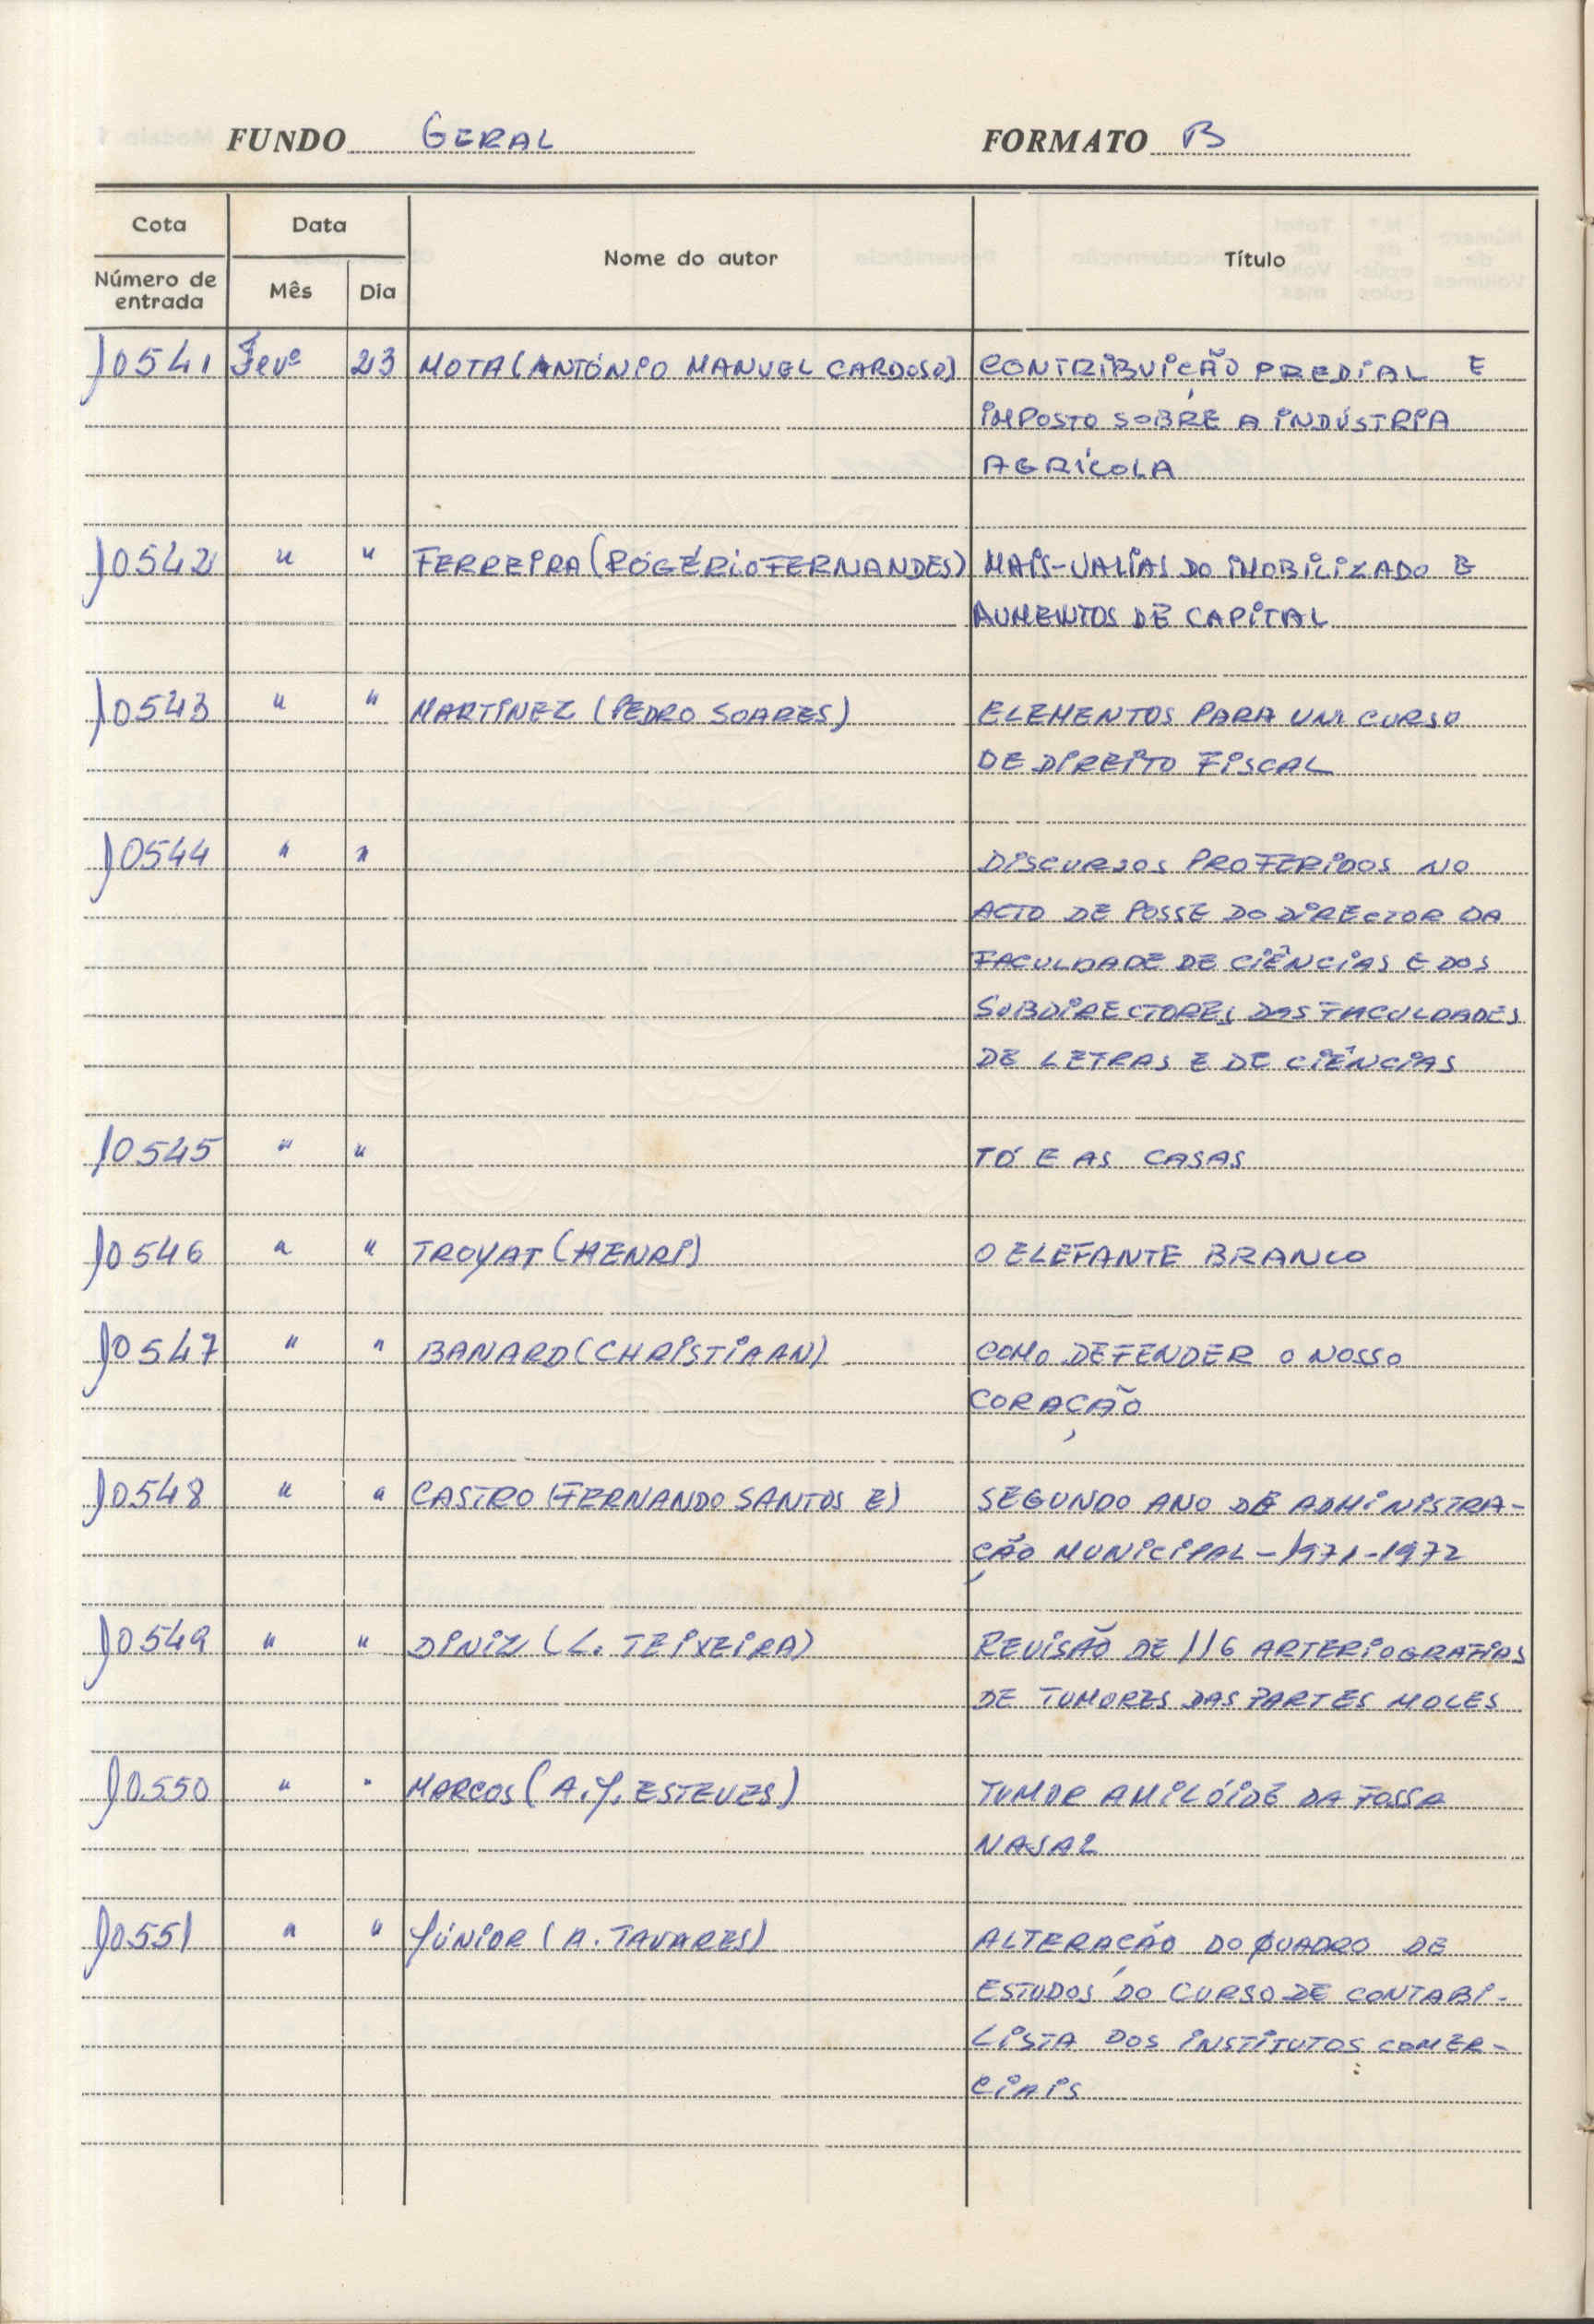 FUNDO GERAL FORMATO B
Cota Data Nome do autor Título
Número de entrada Mês Dia
10541 Fevº 23 MOTA (ANTÓNIO MANUEL CARDOSO) CONTRIBUIÇÃO PREDIAL E
IMPOSTO SOBRE A INDÚSTRIA
AGRÍCOLA
10542 " " FERREIRA (ROGÉRIO FERNANDES) MAIS-VALIAS DO IMOBILIZADO E
AUMENTOS DE CAPITAL
10543 " " MARTINEZ (PEDRO SOARES) ELEMENTOS PARA UM CURSO
DE DIREITO FISCAL
10544 " " DISCURSOS PROFERIDOS NO
ACTO DE POSSE DO DIRECTOR DA
FACULDADE DE CIÊNCIAS E DOS
SUBDIRECTORES DAS FACULDADES
DE LETRAS E DE CIÊNCIAS
10545 " " TÓ E AS CASAS
10546 " " TROYAT (HENRI) O ELEFANTE BRANCO
10547 " " BANARD (CHRISTIAAN) COMO DEFENDER O NOSSO
CORAÇÃO
10548 " " CASTRO (FERNANDO SANTOS E) SEGUNDO ANO DE ADMINISTRA-
ÇÃO MUNICIPAL - 1971-1972
10549 " " DINIZ (L. TEIXEIRA) REVISÃO DE 116 ARTERIOGRAFIAS
DE TUMORES DAS PARTES MOLES
10550 " " MARCOS (A.J. ESTEVES) TUMOR AMILÓIDE DA FOSSA
NASAL
10551 " " JÚNIOR (A. TAVARES) ALTERAÇÃO DO QUADRO DE
ESTUDOS DO CURSO DE CONTABI-
LISTA DOS INSTITUTOS COMER-
CIAIS